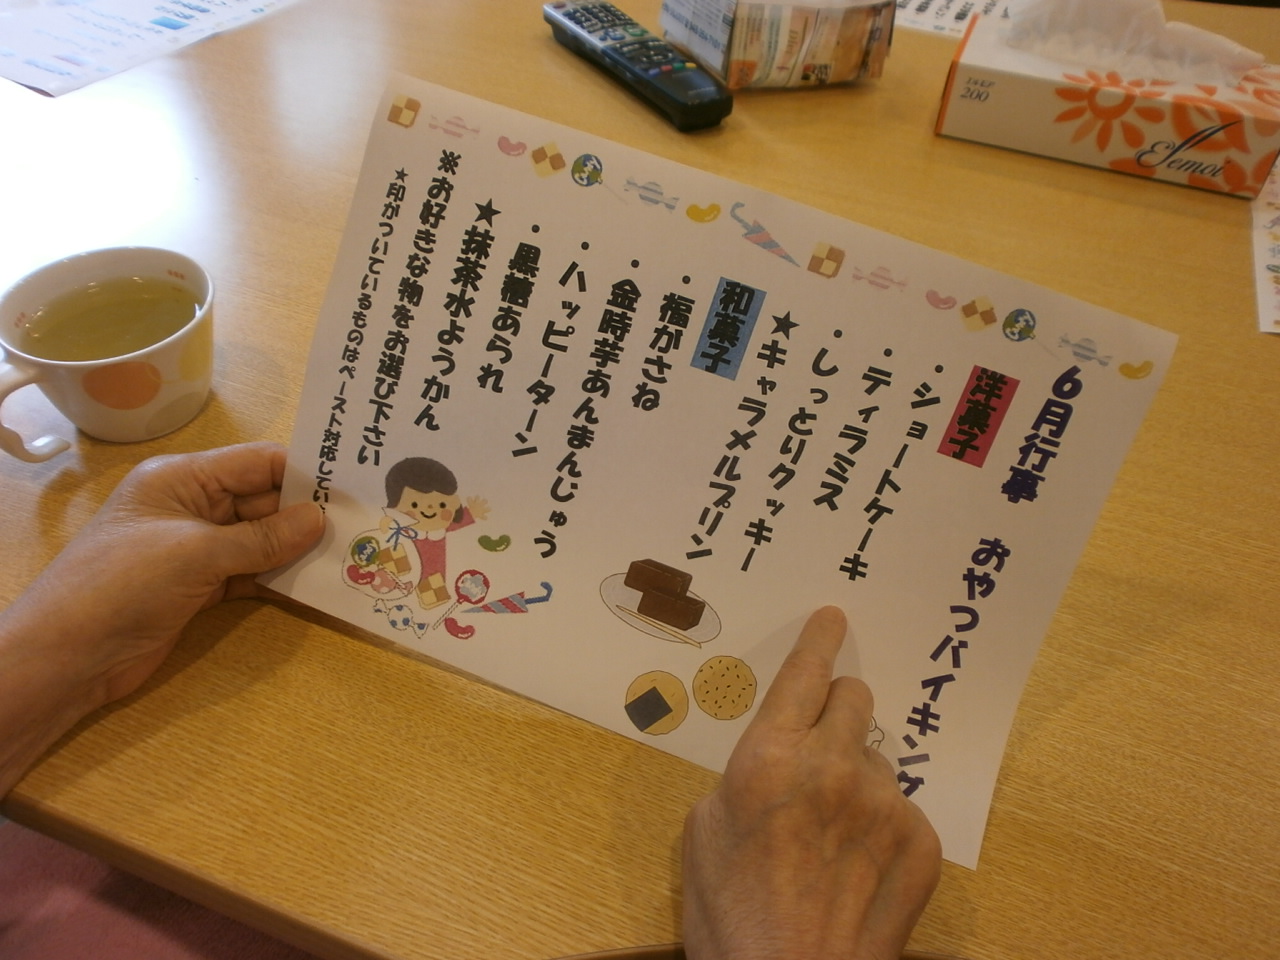 6月行事 おやつバイキング
洋菓子
・ショートケーキ
・ティラミス
・しっとりクッキー
★キャラメルプリン
和菓子
・福がさね
・金時芋あんまんじゅう
・ハッピーターン
・黒糖あられ
★抹茶水ようかん
※お好きな物をお選び下さい
★印がついているものはペースト対応してい
エルモア
200
Elemoi